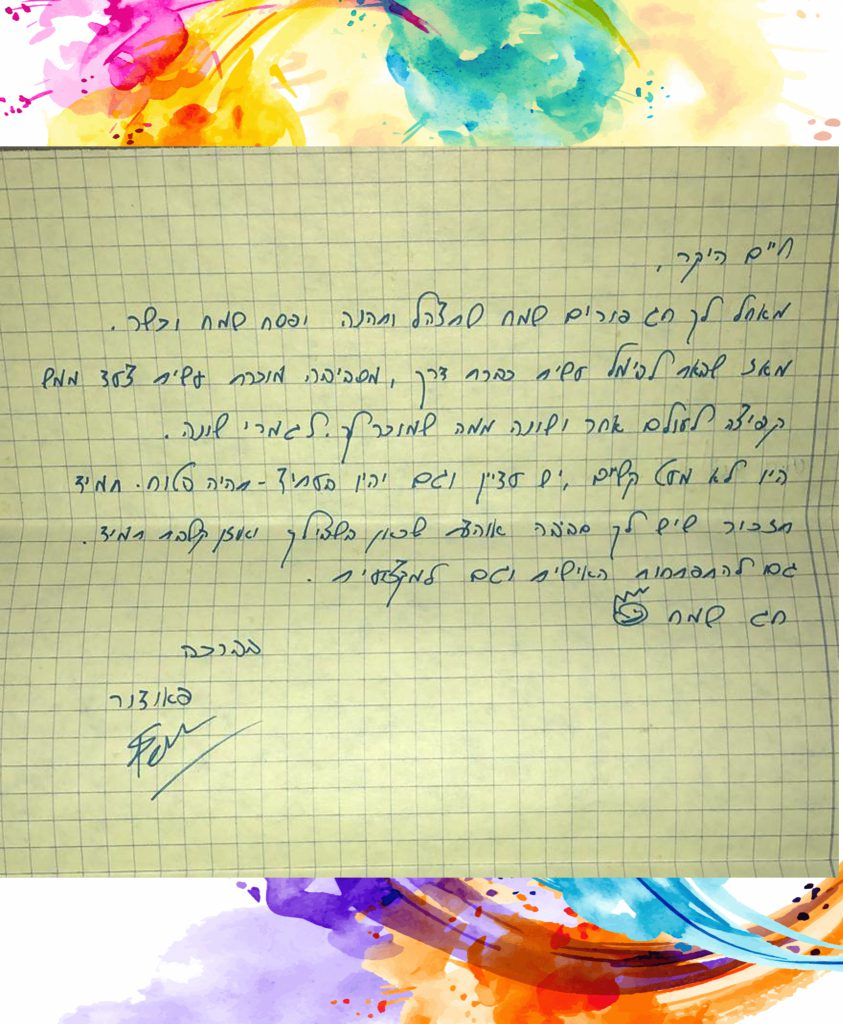 חיים היקר,
מאחל לך חג פורים שמח שתצהל ותהנה ופסח שמח וכשר.
מאז שבאת לכימל עשית כברת דרך, מסביבה מוכרת עשית צעד ממש
קפיצה לעולם אחר ושונה ממה שמוכר לך. לגמרי שונה.
היו לא מעט קשיים, יש עדיין וגם יהיו בעתיד - תהיה בטוח. תמיד
תזכור שיש לך סביבה אוהבת שכאן בשבילך ואוזן קשבת תמיד.
גם להתפתחות האישית וגם למקצועית.
חג שמח
בברכה
פאוצור